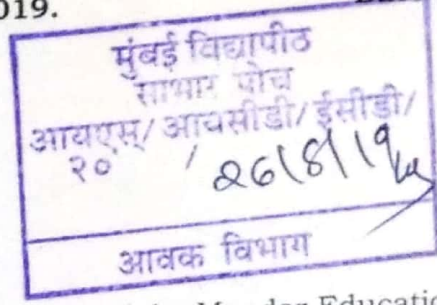 019.
मुंबई विद्यापीठ
साभार पोच
आयएस/ आयसीडी/ ईसीडी/
२० / 26/8/19
आवक विभाग
Mandar Educatio